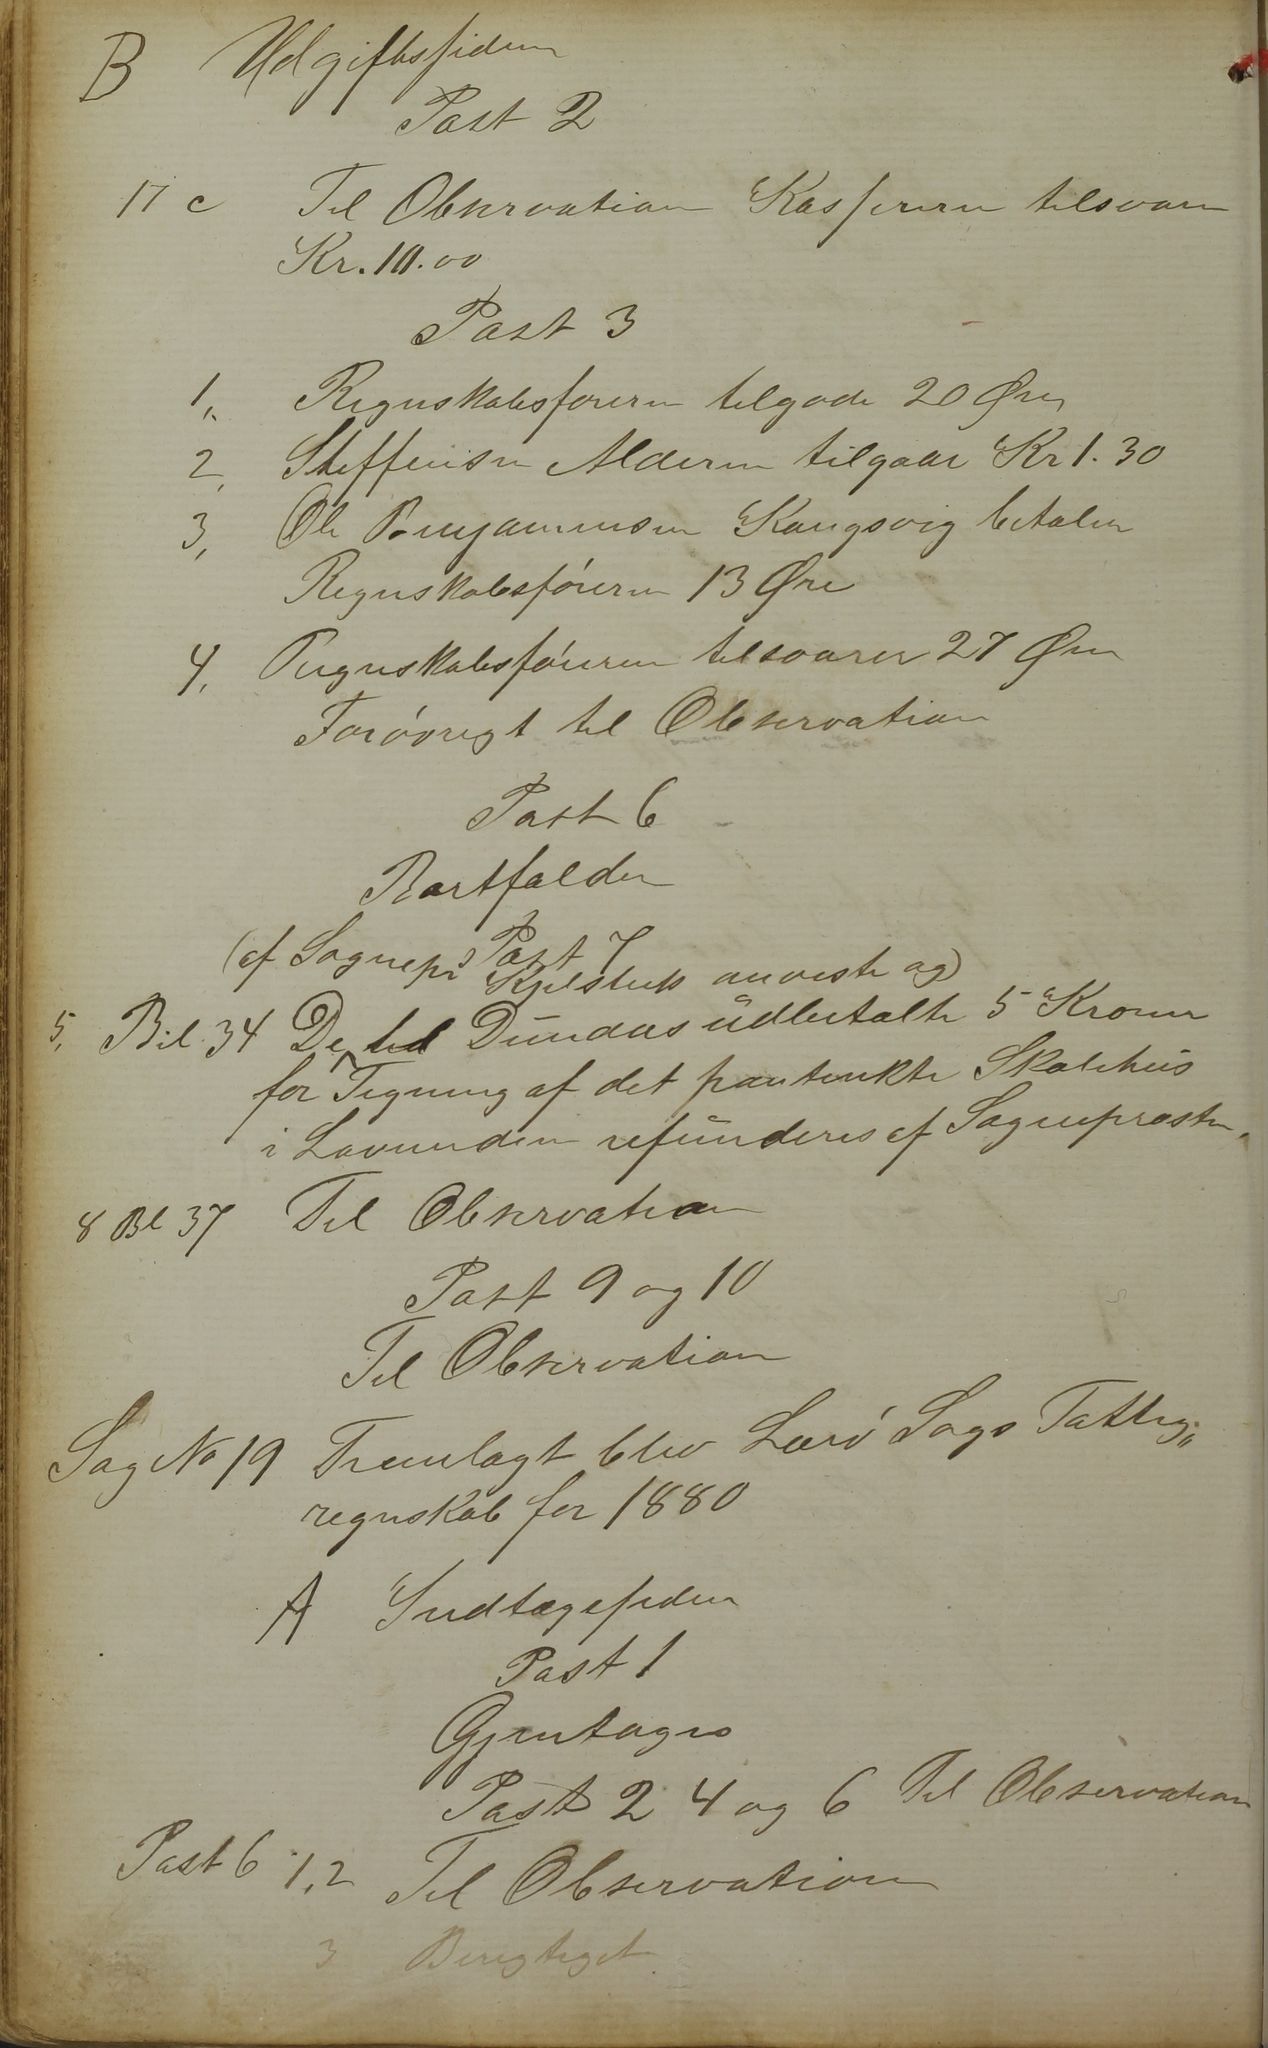 B Udgiftssiden
Post 2
17 c Til Observation Kassereren tilsvarer
Kr. 10.00
Post 3
1,, Regnskabsføreren tilgode 20 Øre
2, Steffensen Alderen tilgode Kr 1.30
3, Ole Benjaminsen Kongsvig betaler
Regnskabsføreren 13 Øre
4, Regnskabsføreren tilsvarer 27 Øre
Forøvrigt til Observation
Post 6
Bortfalder
(cf Sognepr Post 7
anviste og)
5, Bil. 34 De til Dundas udbetalte 5 Kroner
for Tegning af det paatænkte Skolehus
i Lovunden refunderes af Sognepræsten.
8 Bil 37 Til Observation
Post 9 og 10
Til Observation
Sag No 19 Fremlagt blev Lurø Sogs Fattig,,
regnskab for 1880
A Indtægtsiden
Post 1
Gjentages
Post 2 4 og 6 Til Observation
Post 6 1,2 Til Observation
3 Berigtiget